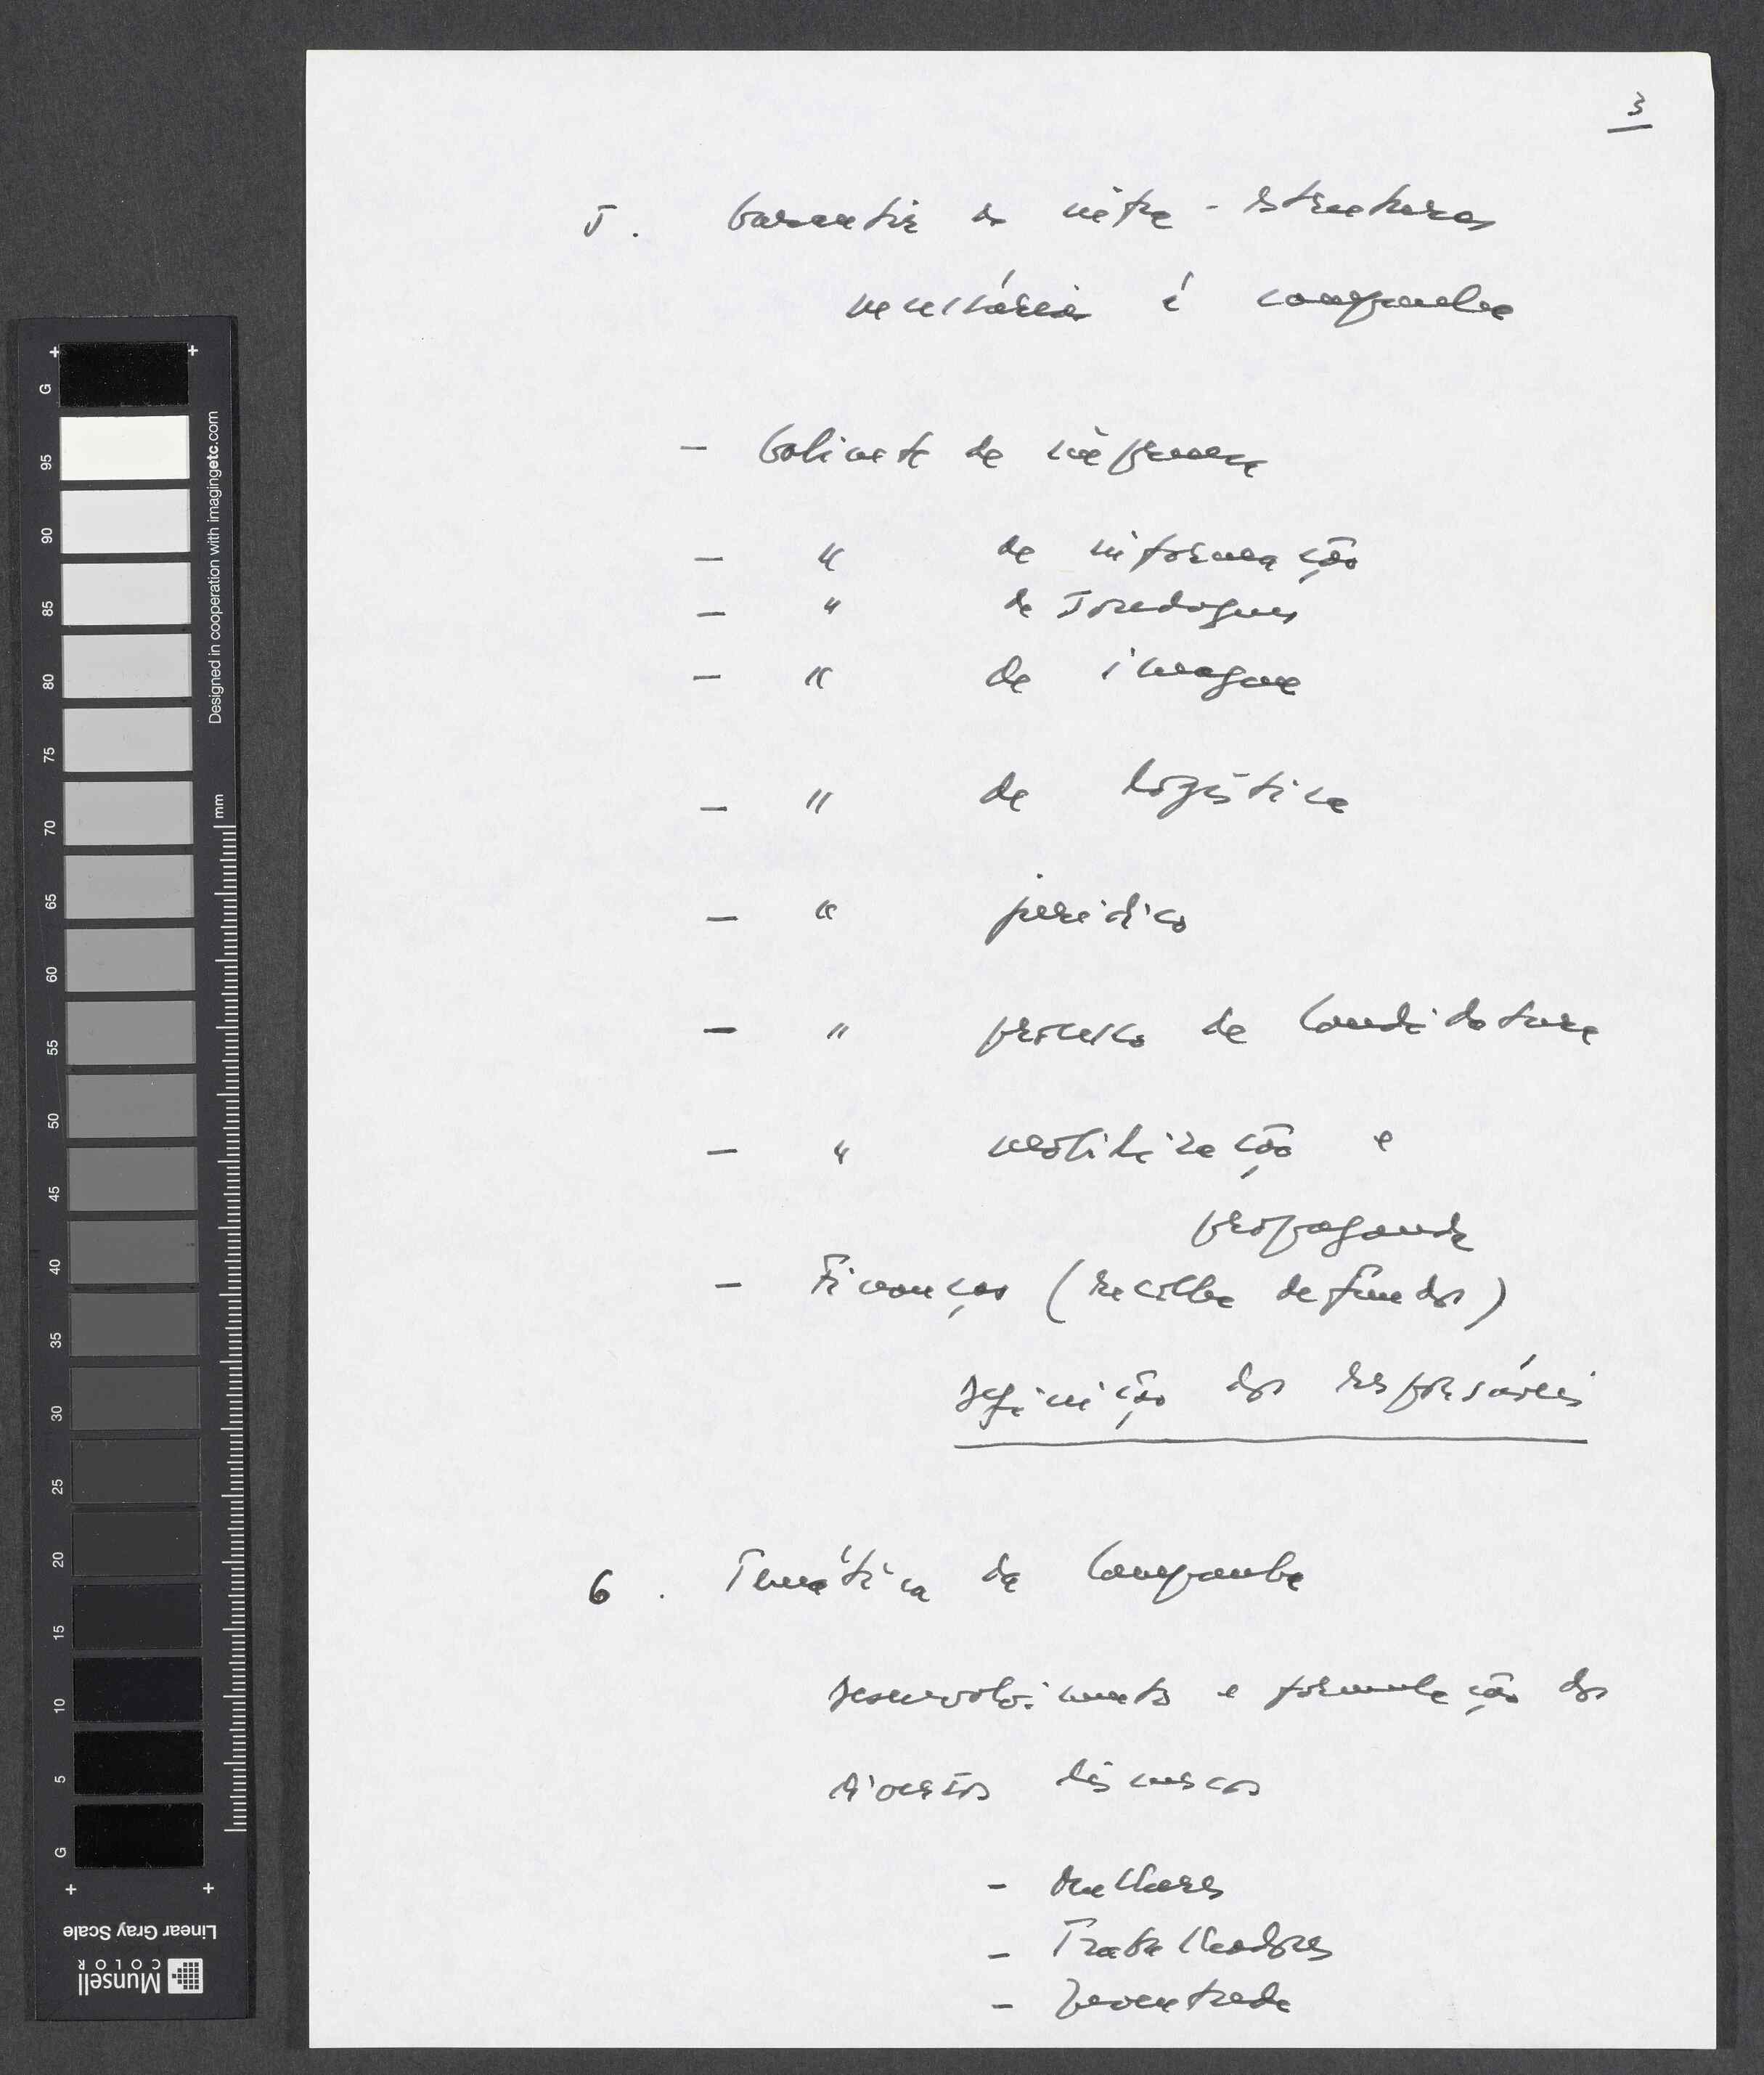 3
5. Garantir as infra-estruturas
necessárias à campanha
- Gabinete de imprensa
- " de informação
- " de Sondagens
- " de imagem
- " de logística
- " jurídico
- " processo de Candidatura
- " mobilização e
propaganda
- Finanças (recolha de fundos)
Definição dos responsáveis
6. Temática da Campanha
Desenvolvimento e formulação dos
diversos discursos
- Mulheres
- Trabalhadores
- Juventude
G
95
90
85
80
75
70
65
60
55
50
45
40
35
30
25
20
15
10
5
G
Designed in cooperation with imagingetc.com
mm
Linear Gray Scale
Munsell
COLOR